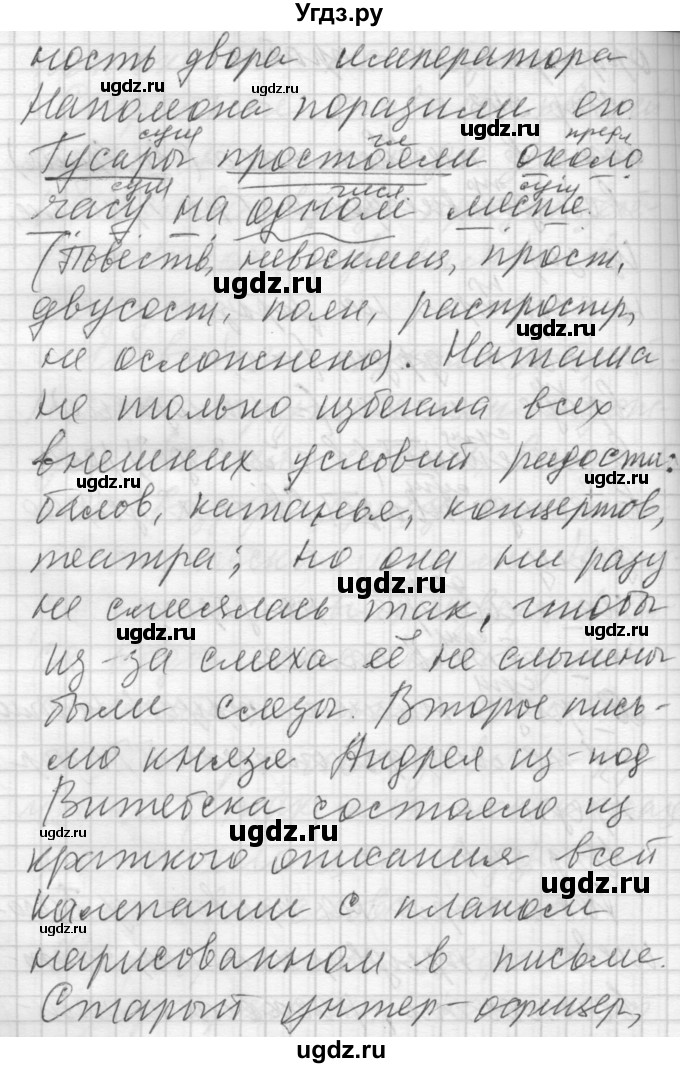 Угдз.ру
ность двора императора
ugdz.ru ugdz.ru
Наполеона поразили его
ugdz.ru
сущ гл предл
Гусары простояли около
сущ числ сущ
часу на одном месте.
(Повеств, невосклиц, прост,
ugdz.ru
двусост, полн, распростр,
ugdz.ru
не осложнено). Наташа
не только избегала всех
внешних условий радости:
ugdz.ru ugdz.ru
балов, катанья, концертов,
театра; но она ни разу
ugdz.ru
не смеялась так, чтобы
ugdz.ru
из-за смеха её не слышны
были слезы. Второе пись-
мо князя Андрея из-под
Витебска состояло из
ugdz.ru ugdz.ru
краткого описания всей
ugdz.ru
кампании с планом
нарисованном в письме.
Старый унтер-офицер,
ugdz.ru
ugdz.ru